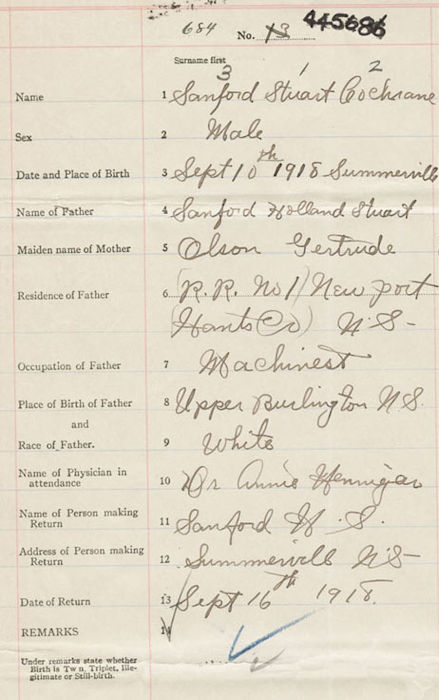 684 No. 13 445686
Surname first
3 1 2
Name 1 Sanford Stuart Cochrane
Sex 2 Male
Date and Place of Birth 3 Sept 10th 1918 Summerville
Name of Father 4 Sanford Holland Stuart
Maiden name of Mother 5 Olson Gertrude
Residence of Father 6 (R. R. No 1) Newport
(Hants Co) N S-
Occupation of Father 7 Machinest
Place of Birth of Father 8 Upper Burlington N S.
and
Race of Father. 9 White
Name of Physician in
attendance 10 Dr Annie Hennigar
Name of Person making
Return 11 Sanford H. S.
Address of Person making
Return 12 Summervill N S-
Date of Return 13 Sept 16th 1918.
REMARKS 14
Under remarks state whether
Birth is Twn, Triplet, Ille-
gitimate or Still-birth.